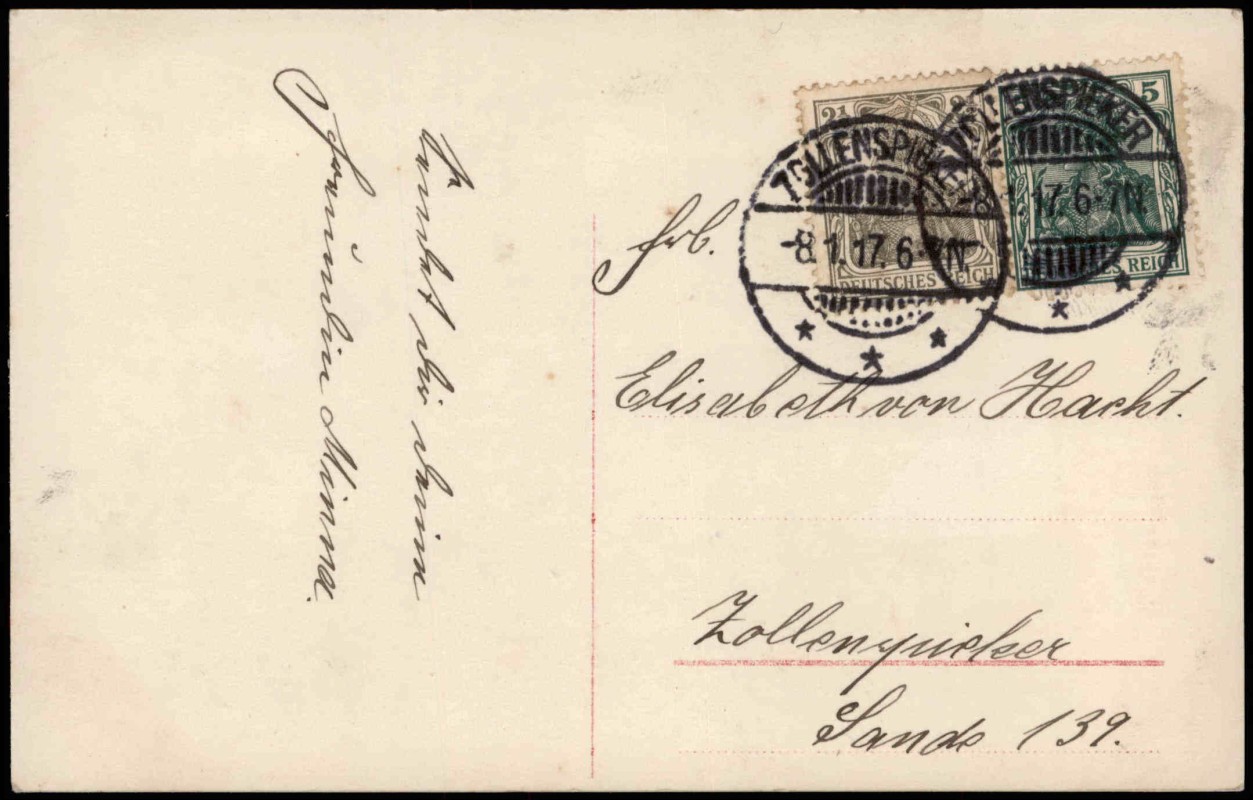 Sendet dir deine
Freundin Minna.
ZOLLENSPIEKER
-8.1.17.6-7N.
DEUTSCHES REICH
ZOLLENSPIEKER
5
1.17.6-7N.
DEUTSCHES REICH
Frl.
Elisabeth von Hacht.
Zollenspieker
Sande 139.